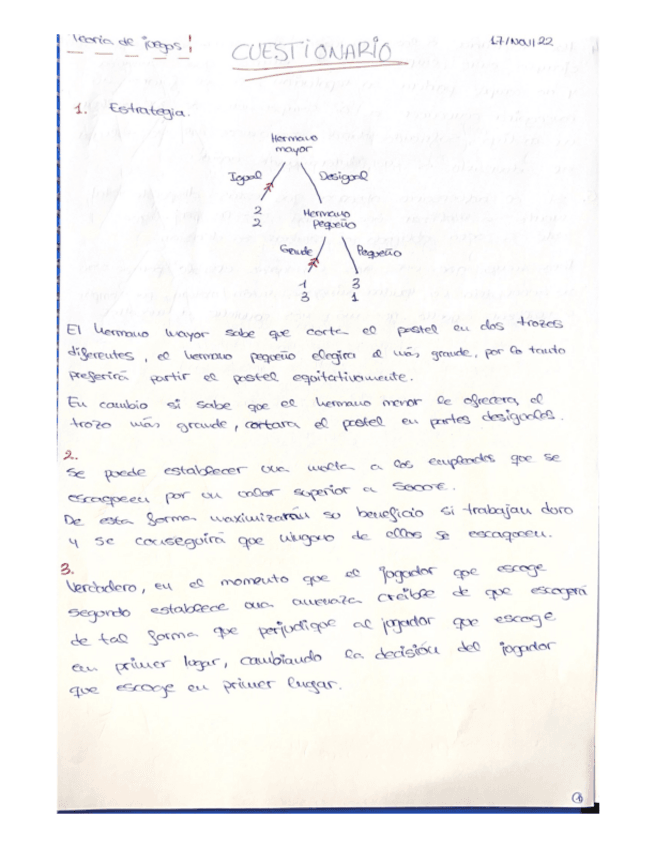 Teoría de juegos!
CUESTIONARIO
17/Nov/22
1. Estrategia.
Hermano
mayor
Igual
Desigual
2
2
Hermano
Pequeño
Grande
Pequeño
1
3
3
1
El hermano mayor sabe que corta el pastel en dos trozos
diferentes, el hermano pequeño elegira el más grande, por lo tanto
preferirá partir el pastel equitativamente.
En cambio si sabe que el hermano menor le ofrecera el
trozo más grande, cortara el pastel en partes desiguales.
2.
Se puede establecer una multa a los empleados que se
escaqueen por un valor superior a
De esta forma maximizarán su beneficio si trabajan duro
y se conseguirá que ninguno de ellos se escaqueen.
3.
Verdadero, en el momento que el jugador que escoge
segundo establece una amenaza creíble de que escogerá
de tal forma que perjudique al jugador que escoge
en primer lugar, cambiando la decisión del jugador
que escoge en primer lugar.
1